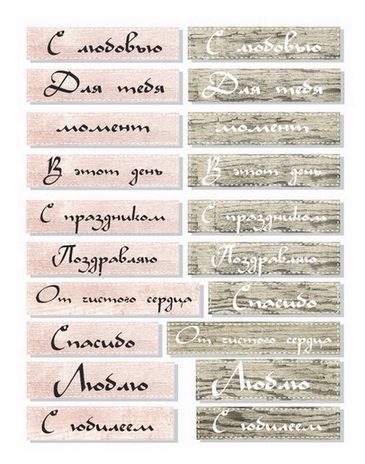 С любовью С любовью
Для тебя Для тебя
момент момент
В этот день В этот день
С праздником С праздником
Поздравляю Поздравляю
От чистого сердца Спасибо
Спасибо От чистого сердца
Люблю Люблю
С юбилеем С юбилеем